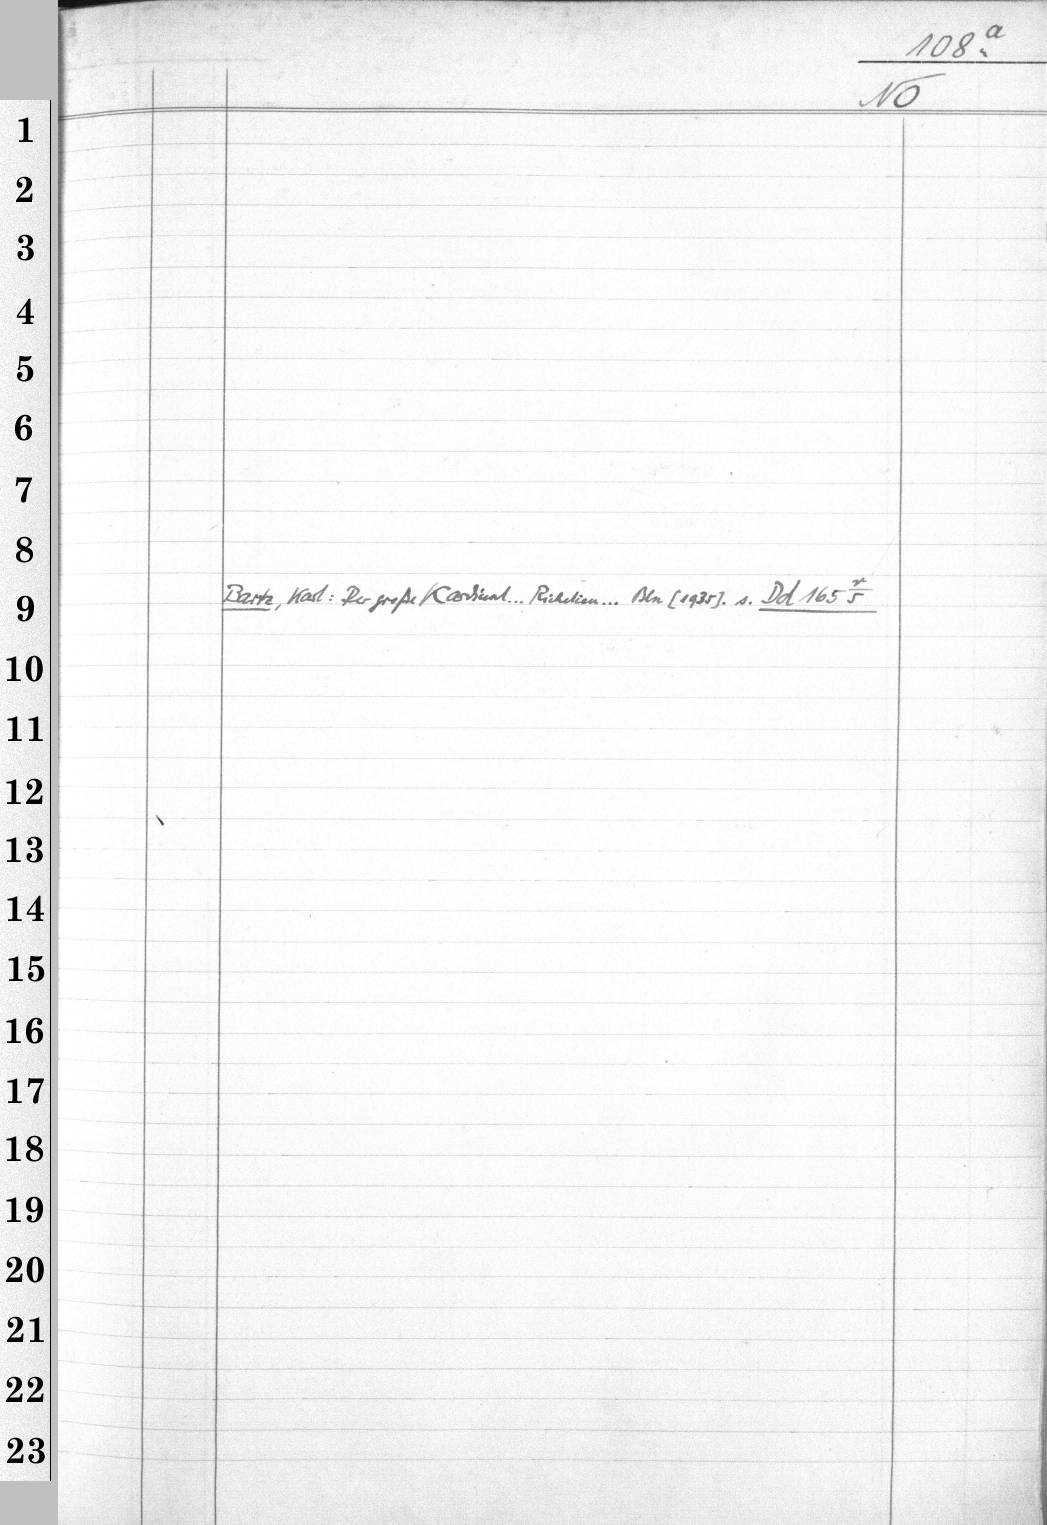 108.a
No
1
2
3
4
5
6
7
8
9 Bartz, Karl: Der große Kardinal... Richelieu... Bln [1935]. s. Dd 165 r/5
10
11
12
13
14
15
16
17
18
19
20
21
22
23